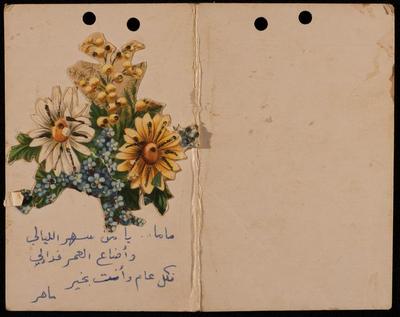 ماما.. يا من سهر الليالي
وأضاع العمر فدا لي
فكل عام وأنت بخير
ماهر